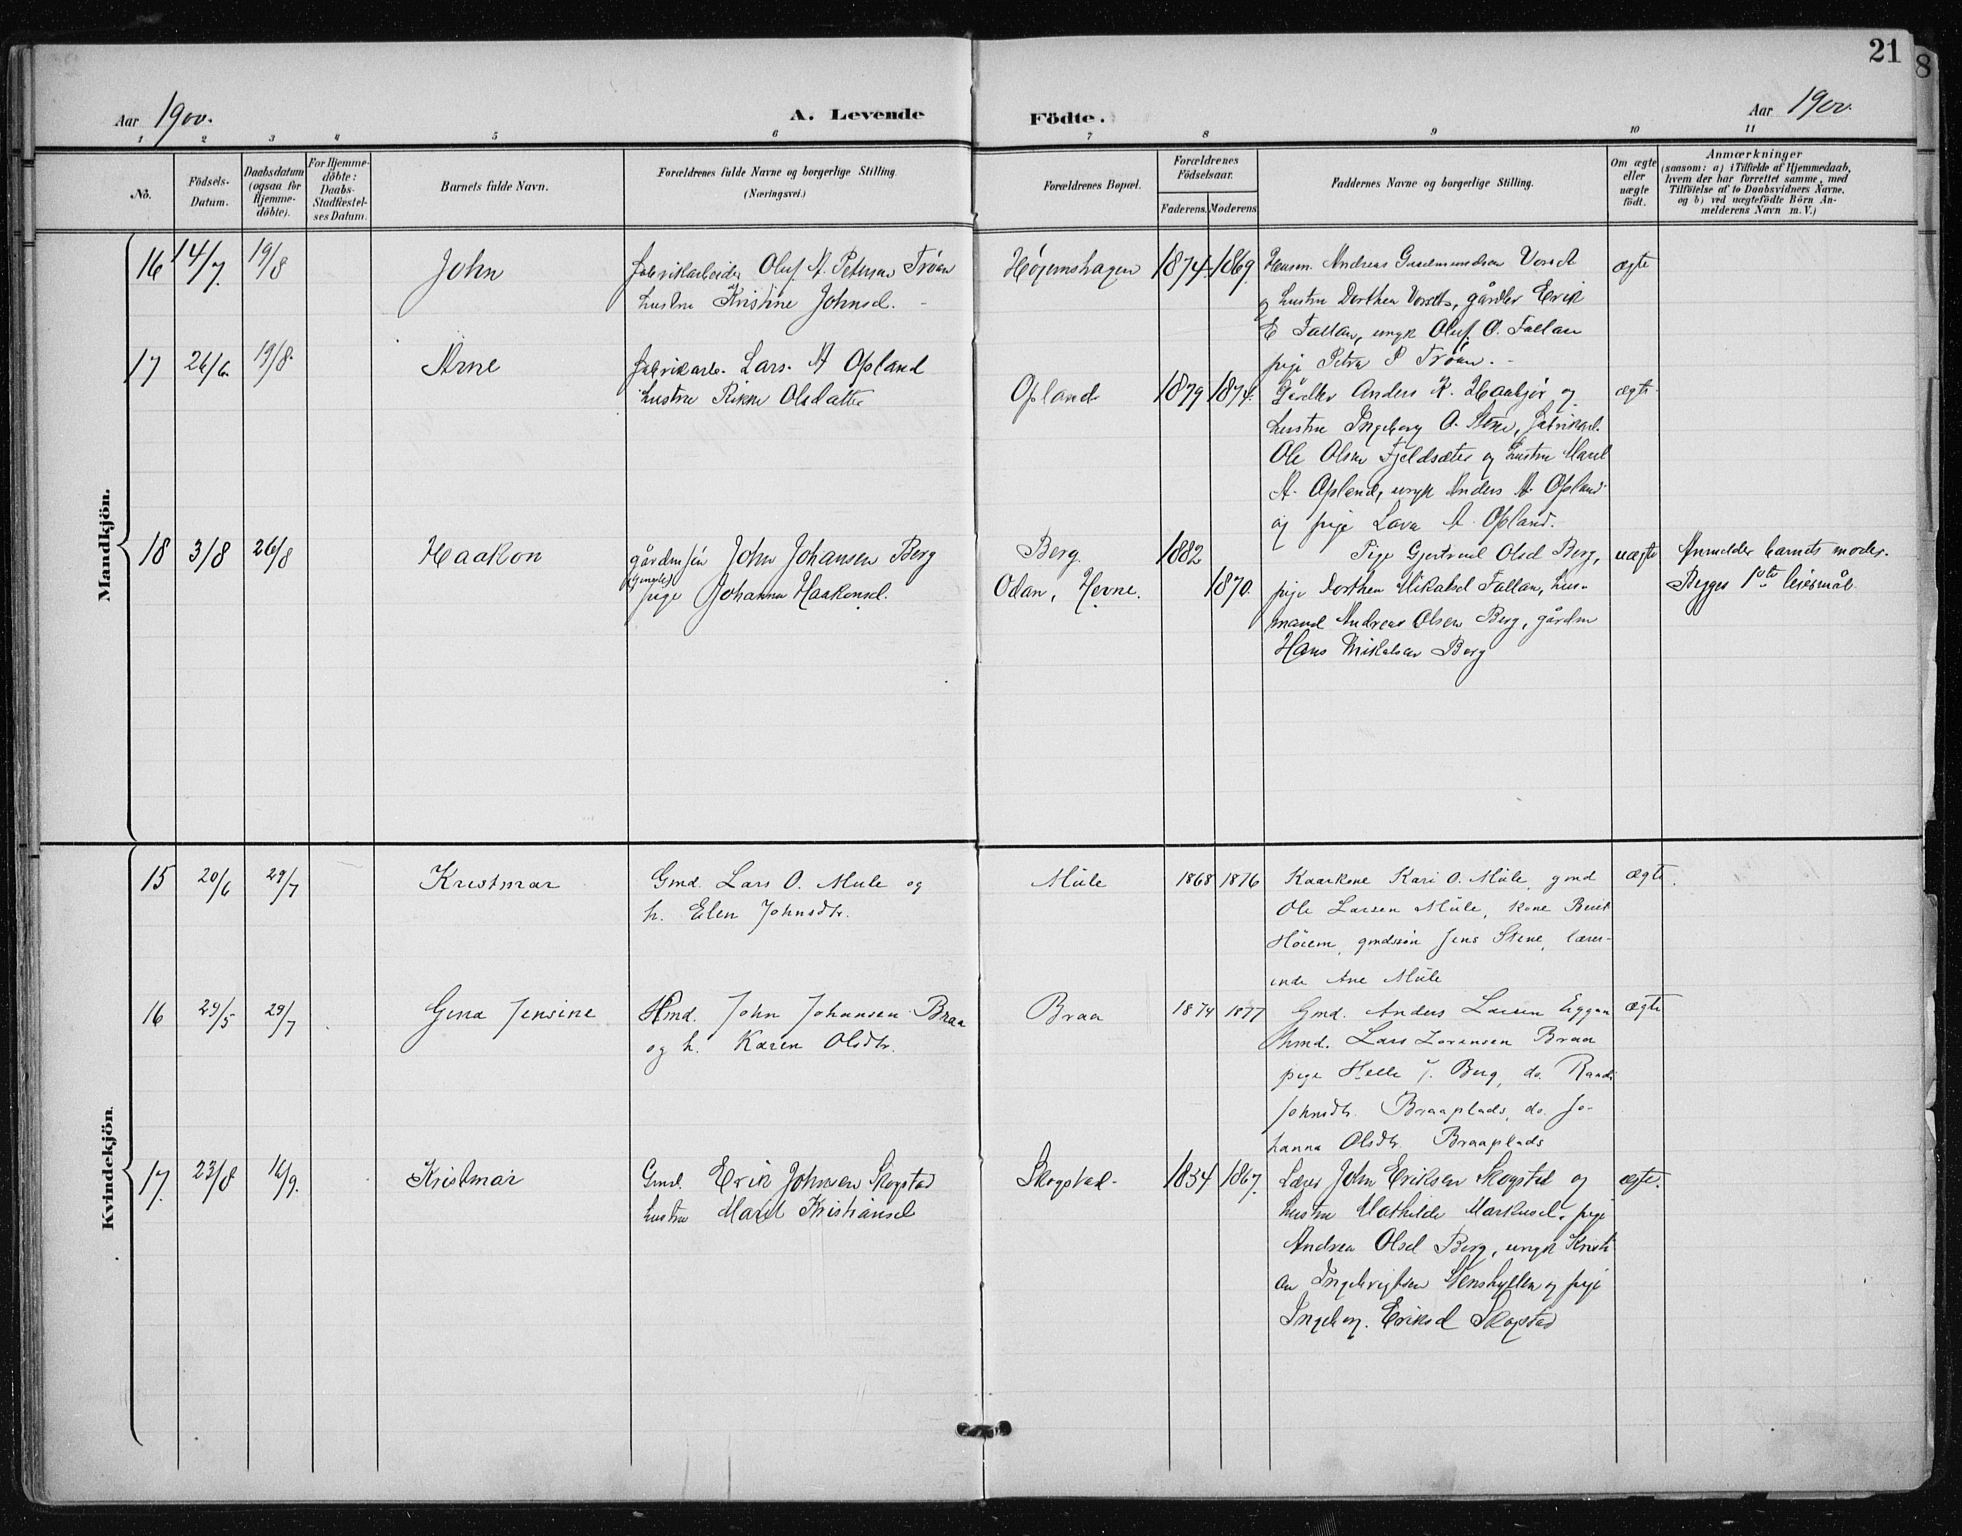 21
8
Aar 1900.
A. Levende Födte.
Aar 1900.
1 2 3 4 5 6 7 8 9 10 11
No.
Födsels-Datum.
Daabsdatum (ogsaa for Hjemme-döbte).
For Hjemme-döbte: Daabs-Stadfæstel-ses Datum.
Barnets fulde Navn.
Forældrenes fulde Navne og borgerlige Stilling.
(Næringsvei.)
Forældrenes Bopæl.
Forældrenes Födselsaar.
Faderens. Moderens
Faddernes Navne og borgerlige Stilling.
Om ægte eller uægte födt.
Anmærkninger
(saasom: a) i Tilfælde af Hjemmedaab,
hvem der har forrettet samme, med
Tilföielse af to Daabsvidners Navne,
og b) ved uægtefödte Börn An-
melderens Navn m. V.)
Mandkjön.
16 14/7. 19/8 John
fabrikarbeider Oluf A. Petersen Trøan
hustru Kristine Johnsd.
Højemshagen 1874 1869.
Husm. Andreas Gudmundsen Vorset
og hustru Dorthea Vorset, gårdbr Erik
E Fallan, ungk Oluf O. Fallan
pige Petra P Trøan.
ægte
17 26/6. 19/8. Arne
fabrikarb. Lars A Opland
hustru Olsdatter
Opland 1879 1874.
Gårdbr Anders K. Haabjør og
hustru Ingeborg O. Stene, fabrikarb.
Ole Olsen Fjeldsæter og hustru Maret
A. Opland, ungk Anders A Opland
og pige Lava A. Opland.
ægte
18 3/8 26/8 Haakon
gårdmsøn John Johansen Berg
pige Johanna Haakensd.
Berg
Odan, Hevne.
1882
1870.
Pige Gjertrud Olsd Berg,
pige Dorthea Mikalsd Fallan, hus-
mand Andreas Olsen Berg, gårdm
Hans Mikalsen Berg
uægte
Anmelder barnets moder.
Begges 1ste leiermål.
Kvindekjön.
15 20/6 29/7 Kristmar
Gmd. Lars O. Mule og
h. Elen Johnsdtr.
Mule 1868 1876
Kaarkone Kari O. Mule, gmd
Ole Larsen Mule, kone Berit
Høiem, gmdssøn Jens Stene, lærer-
inde Ane Mule
ægte.
16 29/5 29/7 Gina Jensine
Hmd. John Johansen Braa
og h. Karen Olsdtr.
Braa 1874 1877
Gmd. Anders Larsen Eggan
hmd. Lars Lorensen Braa
pige Helle J. Berg, do. Randi
Johnsdtr. Braaplads, do. Jo-
hanna Olsdtr. Braaplads
ægte
17. 23/8 16/9. Kristmar
Gmd. Erik Johnsen Skogstad
hustru Maret Kristiansd
Skogstad 1854 1867.
Lærer John Eriksen Skogstad og
hustru Mathilde Markusd, pige
Andrea Olsd Berg, ungk Kristi
an Ingebrigtsen Stenshyllen og pige
Ingeborg Eriksd Skogstad
ægte.